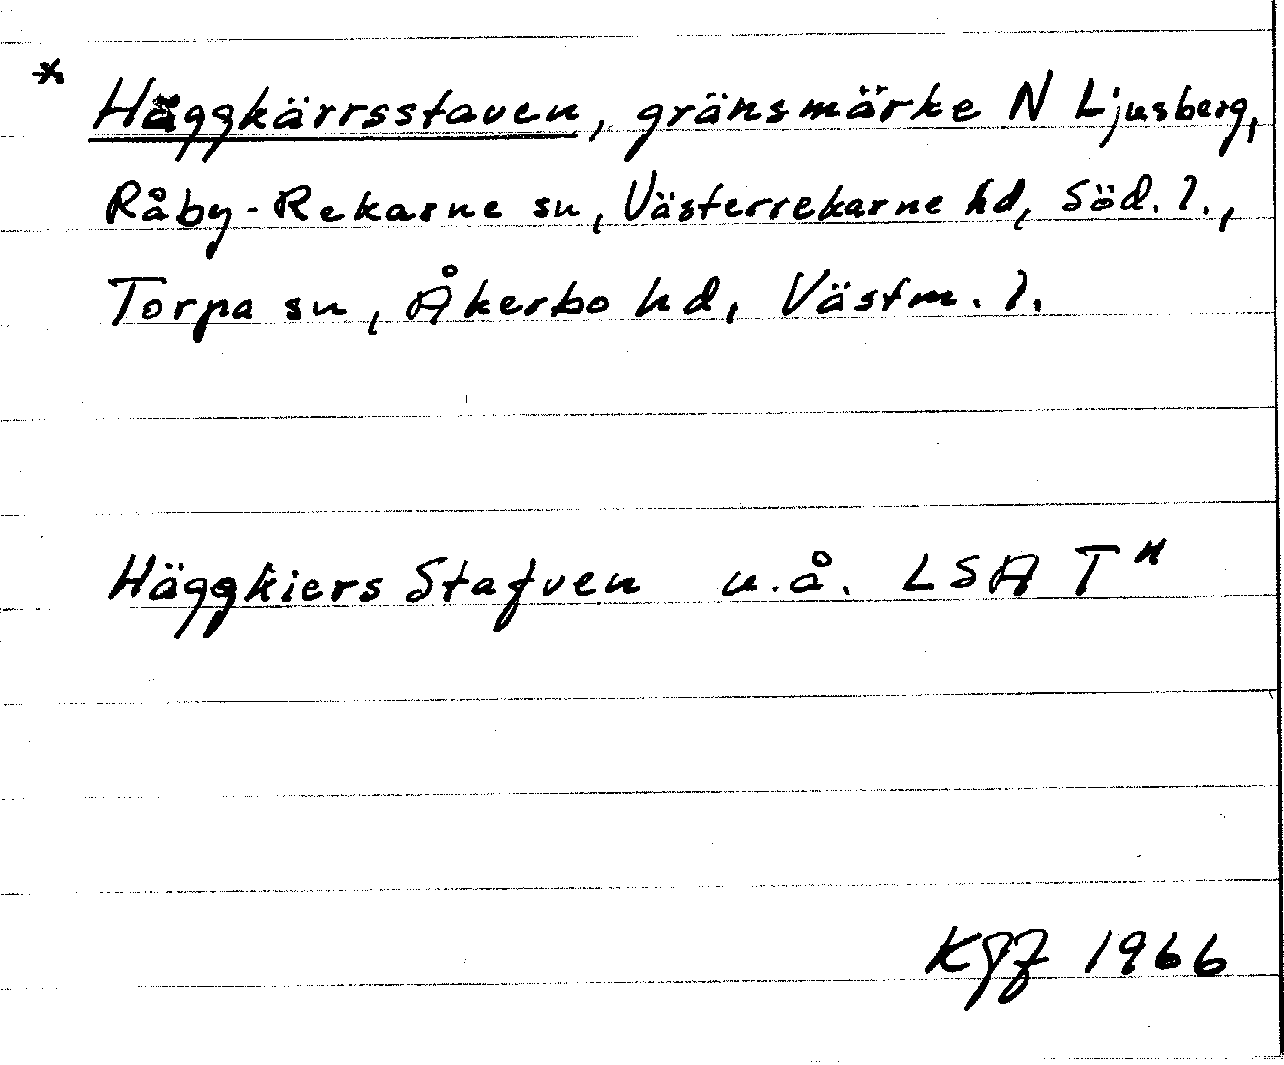 * Häggkärrsstaven, gränsmärke N Ljusberg,
Råby-Rekarne sn, Västerrekarne hd, Söd. l.,
Torpa sn, Åkerbo hd, Västm. l.
Häggkiers Stafven u.å. LSA T"
1966